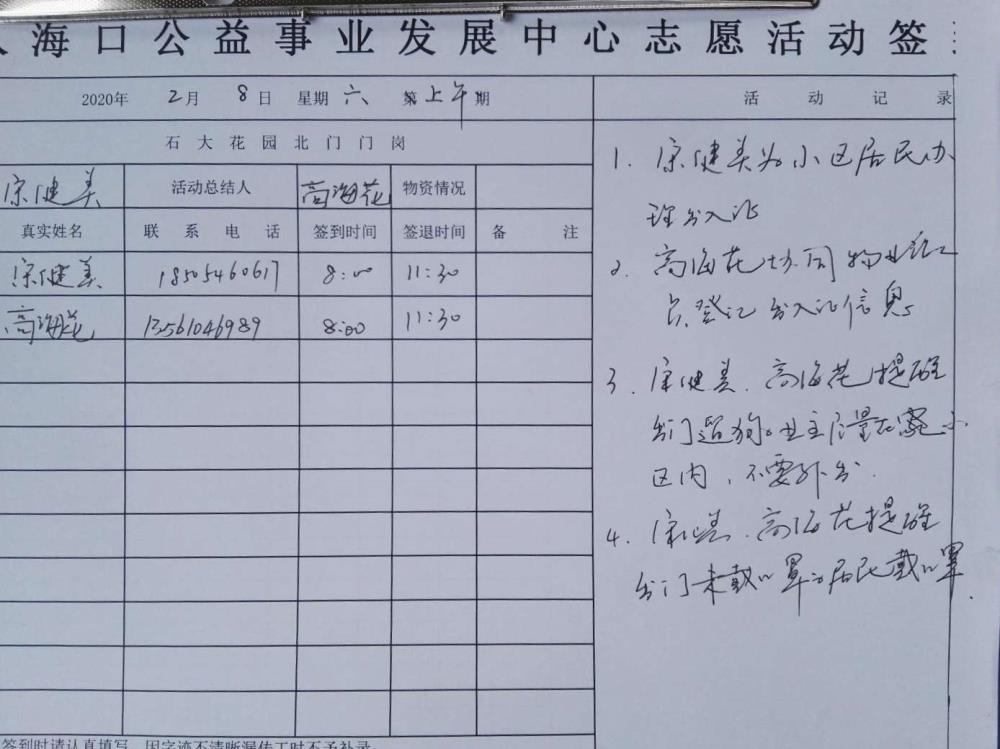 海口公益事业发展中心志愿活动签
2020年 2月 8日 星期六 第上午期
活动记录
石大花园北门门岗
宗健美 活动总结人 高海花 物资情况
真实姓名 联系电话 签到时间 签退时间 备注
宗健美 18505460617 8:00 11:30
高海花 13561046989 8:00 11:30
1. 宗健美为小区居民办
理出入证
2. 高海花协同物业
员登记出入证信息
3. 宗健美、高海花提醒
出门遛狗业主尽量在小
区内,不要外出.
4. 宗健美、高海花提醒
出门未戴口罩的居民戴口罩.
签到时请认真填写,因字迹不清晰漏传工时不予补录。